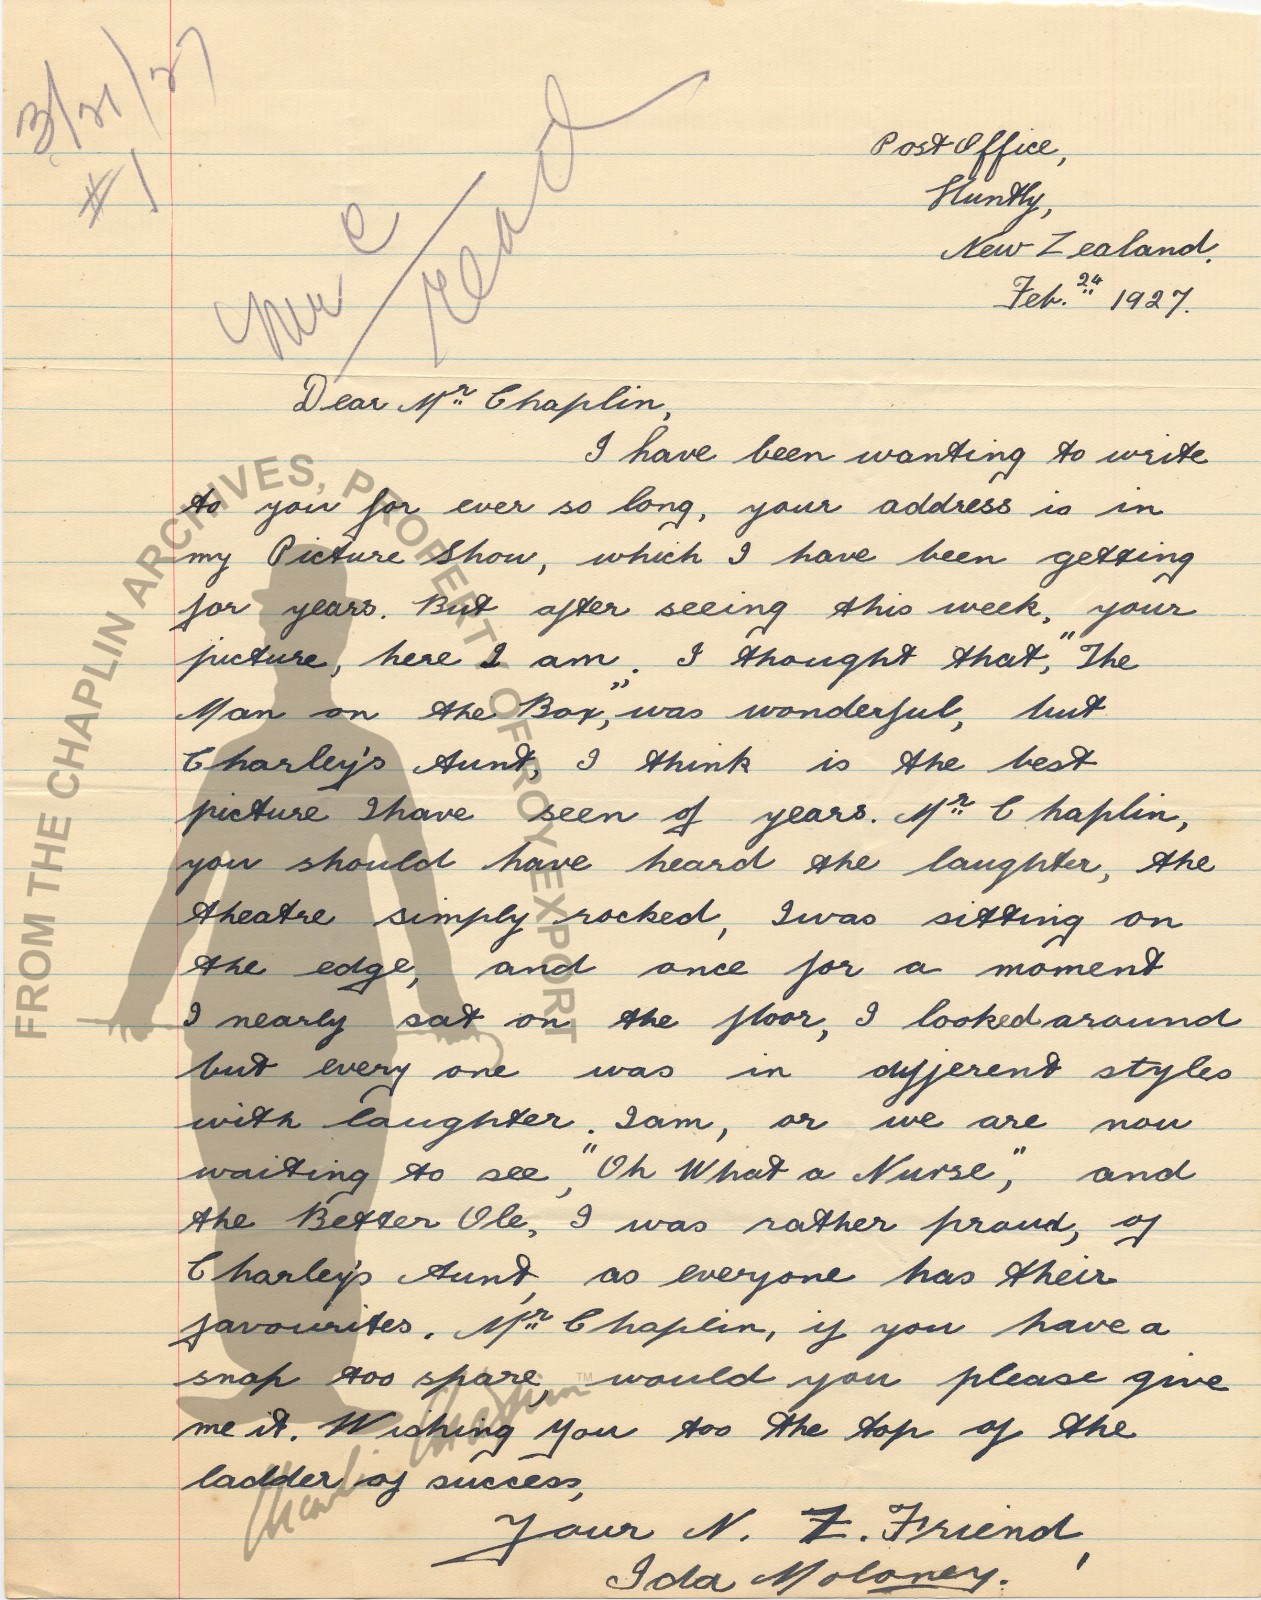 3/21/27
#1
read
Post Office,
Huntly,
New Zealand.
Feb. 24 1927.
Dear Mr Chaplin,
I have been wanting to write
to you for ever so long, your address is in
my Picture Show, which I have been getting
for years. But after seeing this week, your
picture, here I am. I thought that, "The
Man on the Box," was wonderful, but
Charley's Aunt, I think is the best
picture I have seen of years. Mr Chaplin,
you should have heard the laughter, the
theatre simply rocked, I was sitting on
the edge, and once for a moment
I nearly sat on the floor, I looked around
but every one was in different styles
with laughter. I am, or we are now
waiting to see, "Oh What a Nurse," and
the Better Ole, I was rather proud, of
Charley's Aunt, as everyone has their
favourites. Mr Chaplin, if you have a
snap too spare, would you please give
me it. Wishing you too the top of the
ladder of success,
Your N. Z. Friend,
Ida Moloney.
FROM THE CHAPLIN ARCHIVES, PROPERTY OF ROY EXPORT
Charlie Chaplin TM